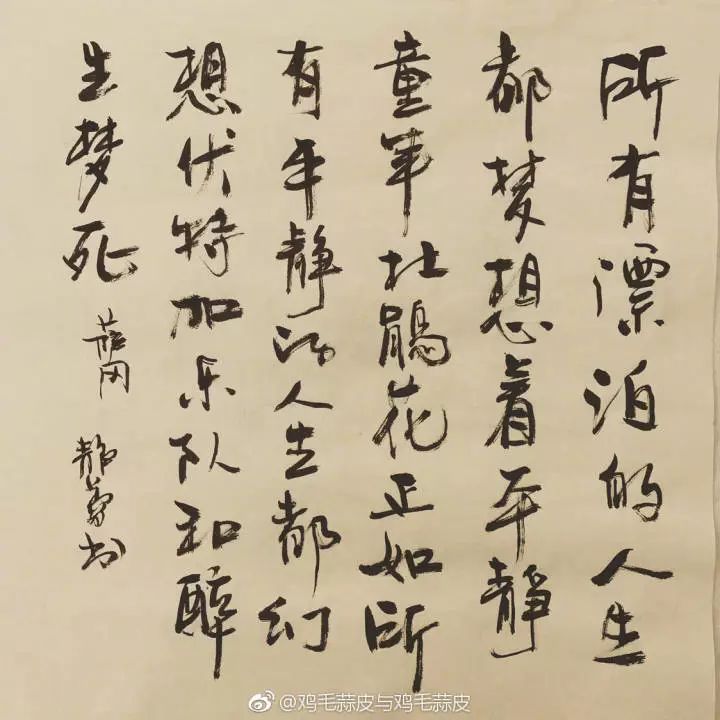 所有漂泊的人生
都梦想着平静
童年杜鹃花正如所
有平静的人生都幻
想伏特加乐队和醉
生梦死 萨冈 静 书
@鸡毛蒜皮与鸡毛蒜皮